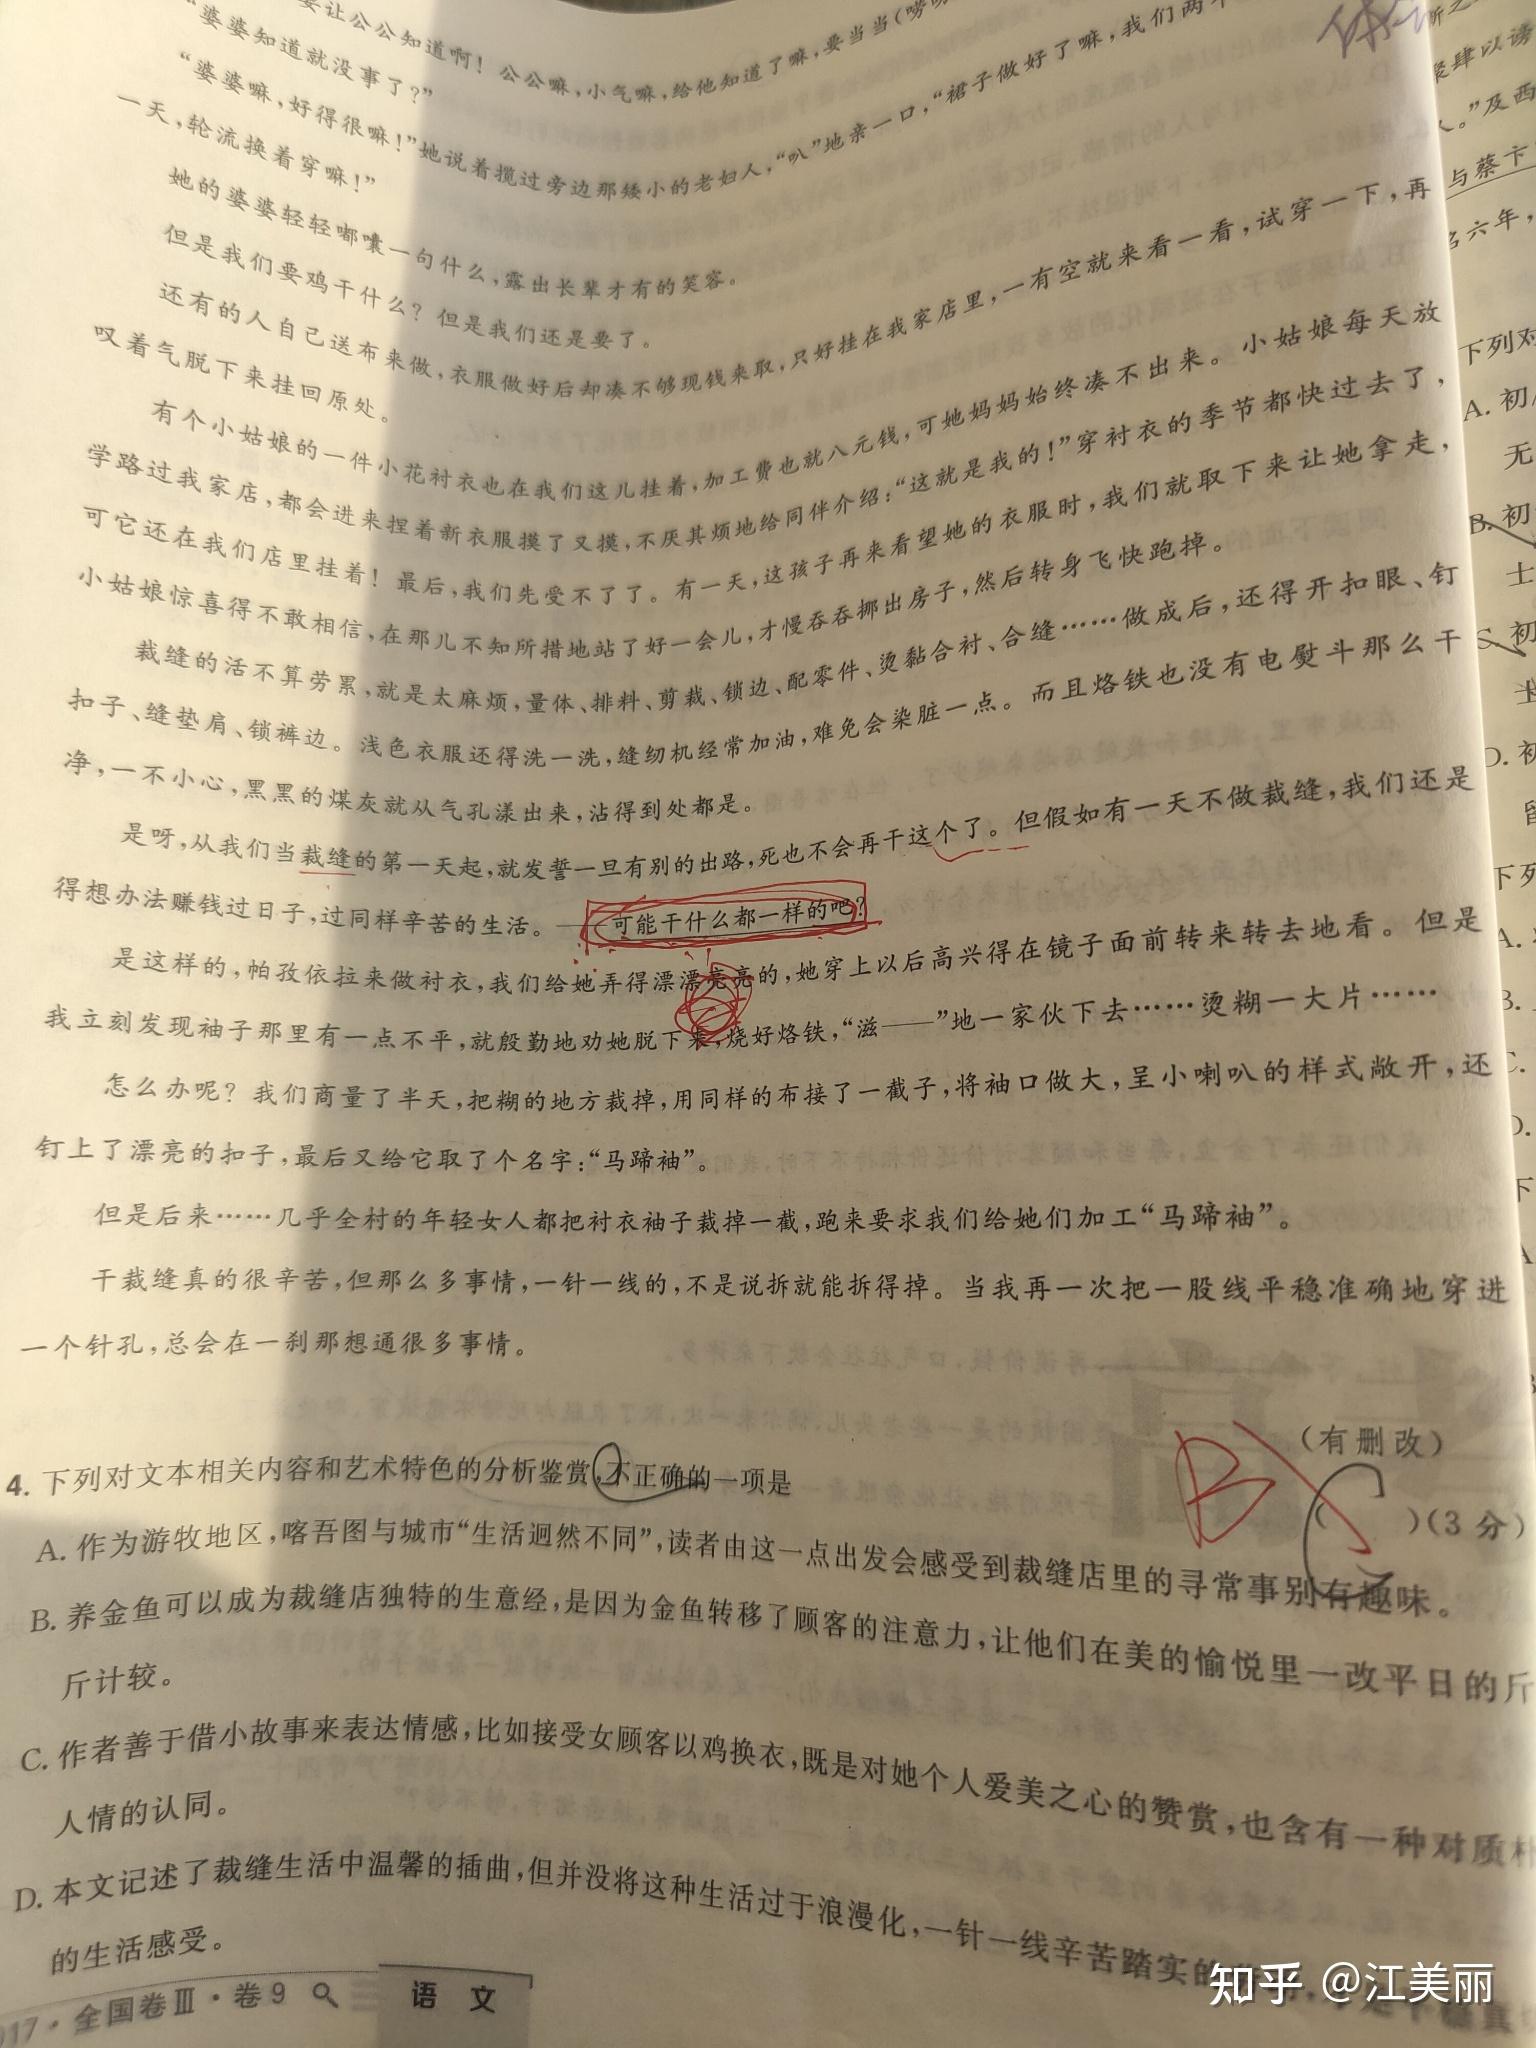 要让公公知道啊！公公嘛，小气嘛，给他知道了嘛，要当当（唠
“婆婆知道就没事了？”
“婆婆嘛，好得很嘛！”她说着揽过旁边那矮小的老妇人，“叭”地亲一口，“裙子做好了嘛，我们两个
一天，轮流换着穿嘛！”
她的婆婆轻轻嘟囔一句什么，露出长辈才有的笑容。
但是我们要鸡干什么？但是我们还是要了。
还有的人自己送布来做，衣服做好后却凑不够现钱来取，只好挂在我家店里，一有空就来看一看，试穿一下，再
叹着气脱下来挂回原处。
有个小姑娘的一件小花衬衣也在我们这儿挂着，加工费也就八元钱，可她妈妈始终凑不出来。小姑娘每天放
学路过我家店，都会进来捏着新衣服摸了又摸，不厌其烦地给同伴介绍：“这就是我的！”穿衬衣的季节都快过去了，
可它还在我们店里挂着！最后，我们先受不了了。有一天，这孩子再来看望她的衣服时，我们就取下来让她拿走，
小姑娘惊喜得不敢相信，在那儿不知所措地站了好一会儿，才慢吞吞挪出房子，然后转身飞快跑掉。
裁缝的活不算劳累，就是太麻烦，量体、排料、剪裁、锁边、配零件、烫黏合衬、合缝……做成后，还得开扣眼、钉
扣子、缝垫肩、锁裤边。浅色衣服还得洗一洗，缝纫机经常加油，难免会染脏一点。而且烙铁也没有电熨斗那么干
净，一不小心，黑黑的煤灰就从气孔漾出来，沾得到处都是。
是呀，从我们当裁缝的第一天起，就发誓一旦有别的出路，死也不会再干这个了。但假如有一天不做裁缝，我们还是
得想办法赚钱过日子，过同样辛苦的生活。——可能干什么都一样的吧？
是这样的，帕孜依拉来做衬衣，我们给她弄得漂漂亮亮的，她穿上以后高兴得在镜子面前转来转去地看。但是
我立刻发现袖子那里有一点不平，就殷勤地劝她脱下来，烧好烙铁，“滋——”地一家伙下去……烫糊一大片……
怎么办呢？我们商量了半天，把糊的地方裁掉，用同样的布接了一截子，将袖口做大，呈小喇叭的样式敞开，还
钉上了漂亮的扣子，最后又给它取了个名字：“马蹄袖”。
但是后来……几乎全村的年轻女人都把衬衣袖子裁掉一截，跑来要求我们给她们加工“马蹄袖”。
干裁缝真的很辛苦，但那么多事情，一针一线的，不是说拆就能拆得掉。当我再一次把一股线平稳准确地穿进
一个针孔，总会在一刹那想通很多事情。
（有删改）
4. 下列对文本相关内容和艺术特色的分析鉴赏，不正确的一项是 （ C ）（3分）
B
A. 作为游牧地区，喀吾图与城市“生活迥然不同”，读者由这一点出发会感受到裁缝店里的寻常事别有趣味。
B. 养金鱼可以成为裁缝店独特的生意经，是因为金鱼转移了顾客的注意力，让他们在美的愉悦里一改平日的斤
斤计较。
C. 作者善于借小故事来表达情感，比如接受女顾客以鸡换衣，既是对她个人爱美之心的赞赏，也含有一种对质朴
人情的认同。
D. 本文记述了裁缝生活中温馨的插曲，但并没将这种生活过于浪漫化，一针一线辛苦踏实的
的生活感受。
017·全国卷Ⅲ·卷9 语文
斯之
聚肆以谤
人。”及西
与蔡卞
名六年，
下列对
A. 初
无
B. 初
士
C. 初
D. 初
留
下列
A.
B.
C.
D.
下
A
知乎 @江美丽